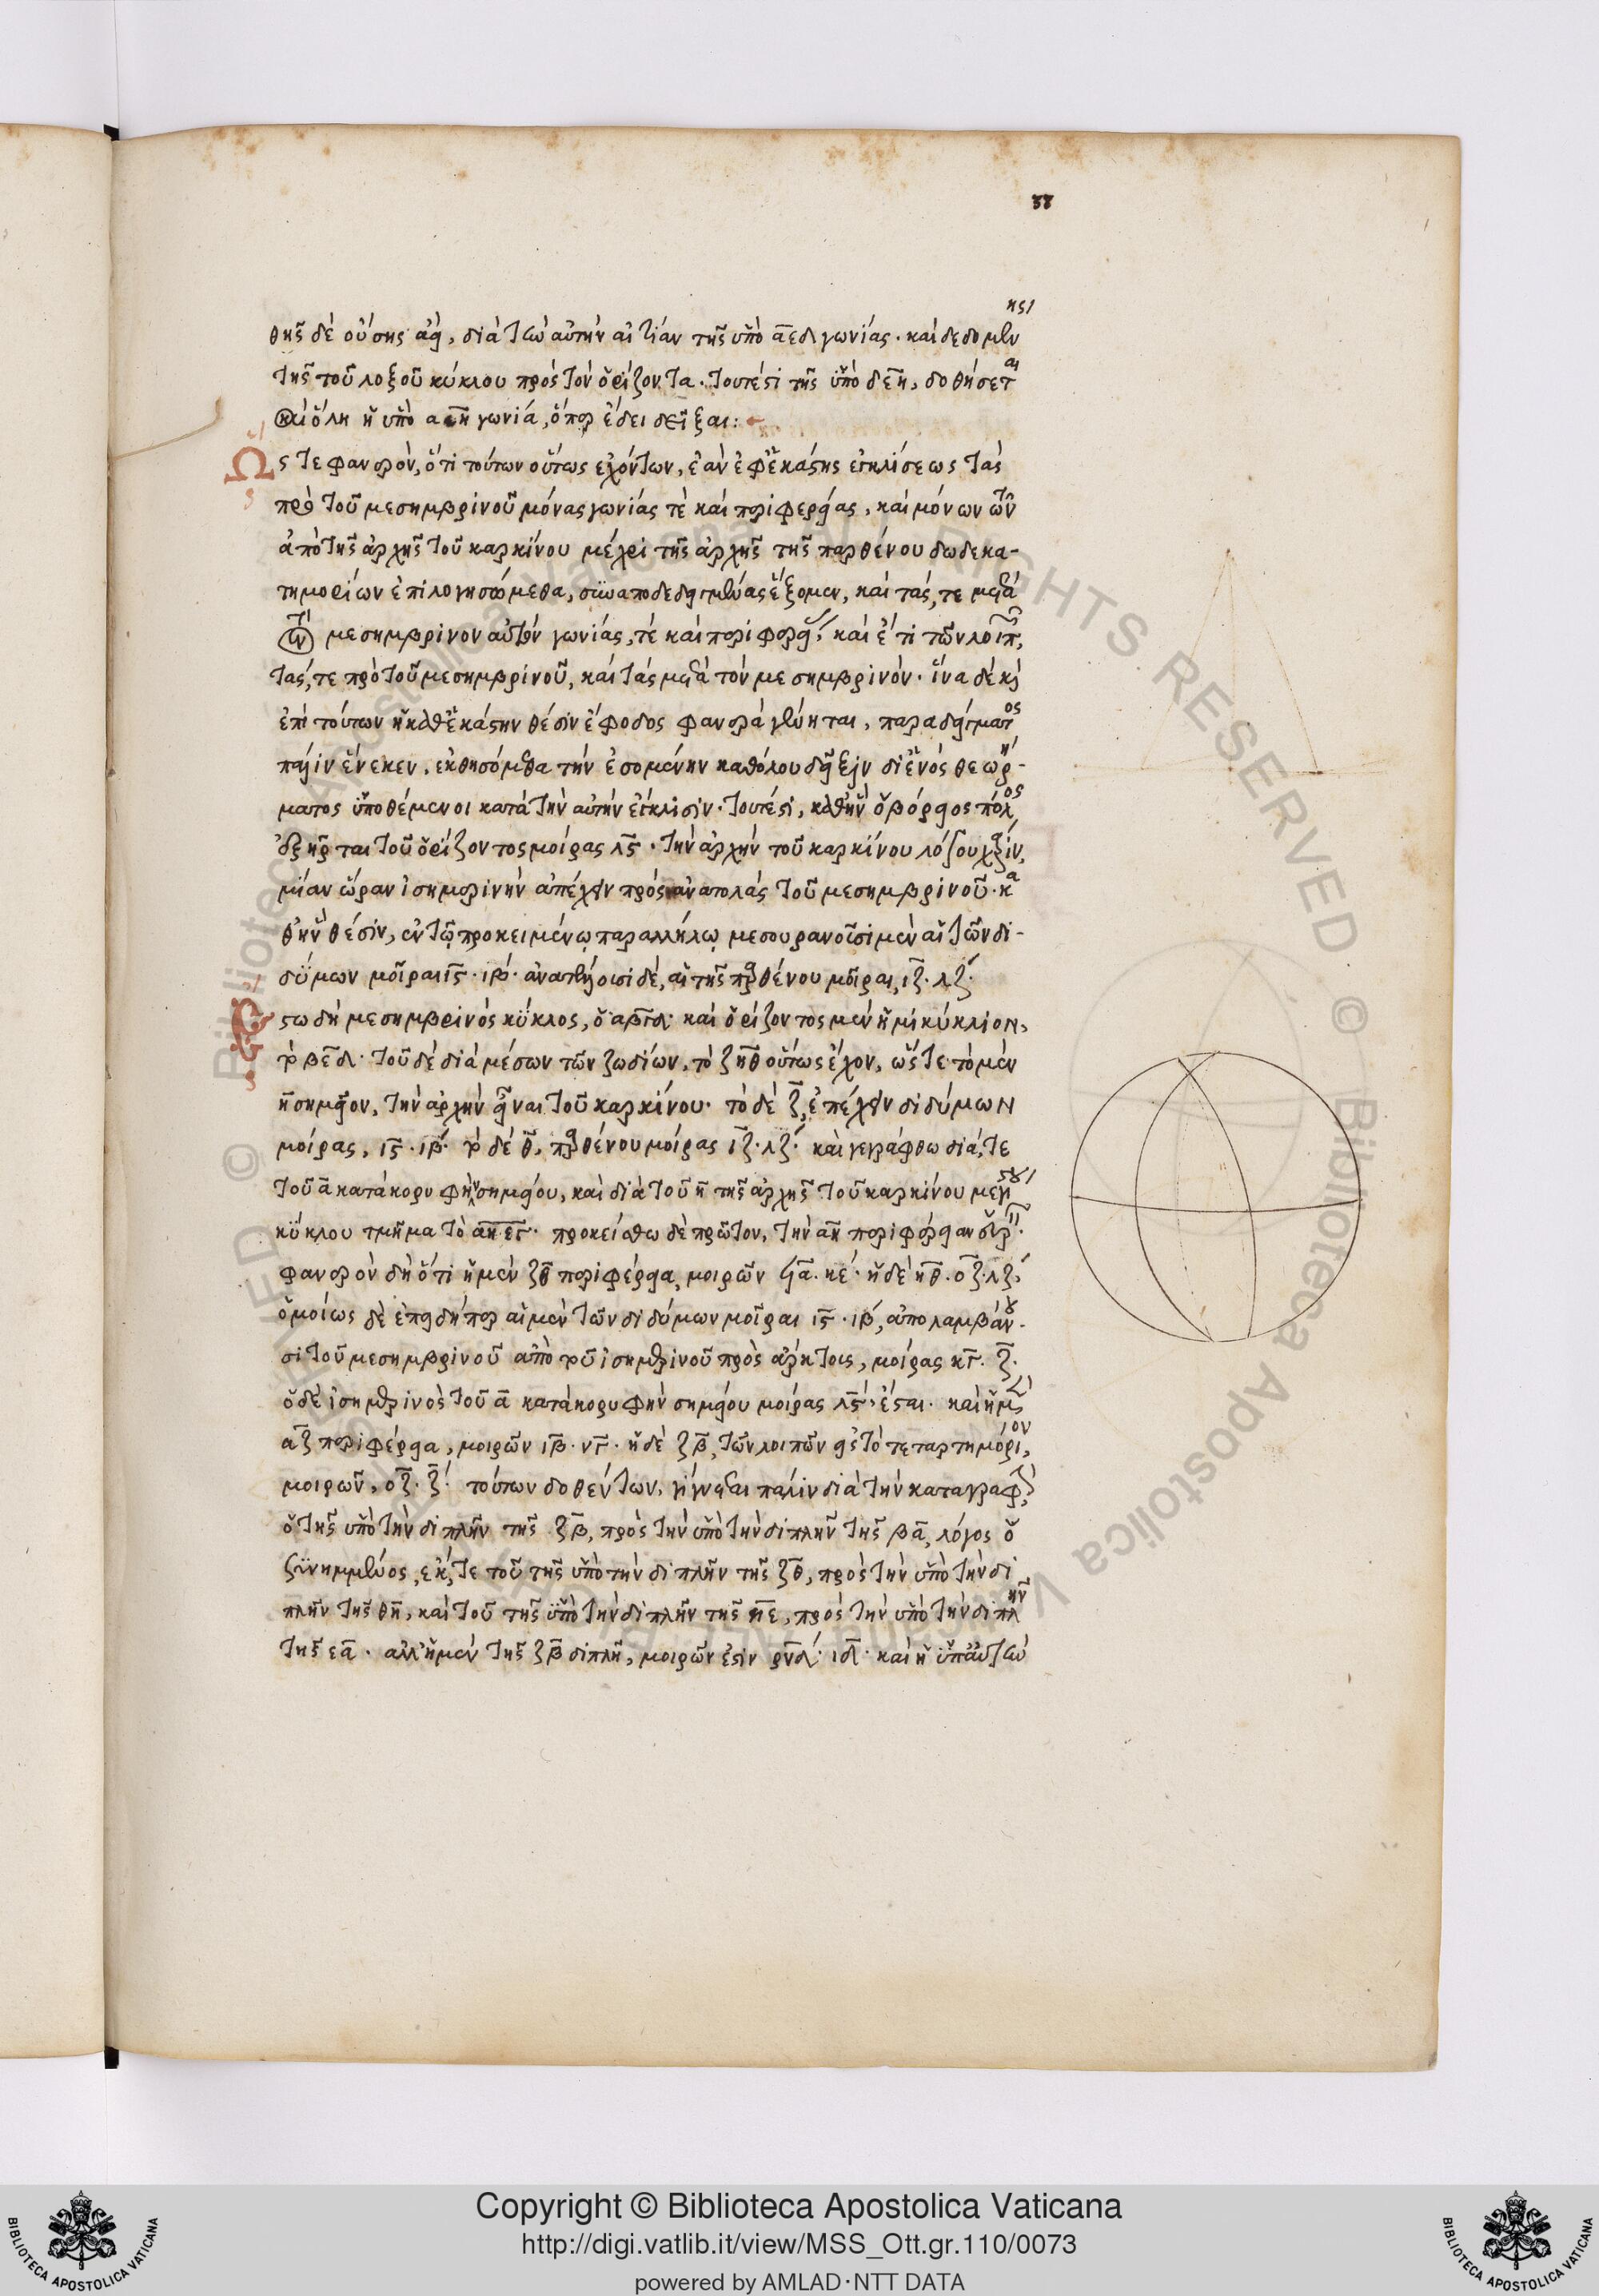 θῆς δὲ οὔσης ἀεὶ, διὰ τὴν αὐτὴν αἰτίαν τῆς ὑπὸ α̅ε̅δ̅ γωνίας. καὶ δεδομένης
τῆς τοῦ λοξοῦ κύκλου πρὸς τὸν ὁρίζοντα. τουτέστι τῆς ὑπὸ δ̅ε̅η̅, δοθήσεται
καὶ ὅλη ἡ ὑπὸ α̅ε̅η̅ γωνία, ὅπερ ἔδει δεῖξαι:
Ὥστε φανερὸν, ὅτι τούτων οὕτως ἐχόντων, ἐὰν ἐφ' ἑκάστης ἐγκλίσεως τὰς
πρὸ τοῦ μεσημβρινοῦ μόνας γωνίας τὲ καὶ περιφερείας, καὶ μόνων τῶν
ἀπὸ τῆς ἀρχῆς τοῦ καρκίνου μέχρι τῆς ἀρχῆς τῆς παρθένου δωδεκα-
τημορίων ἐπιλογησώμεθα, συναποδεδειγμένας ἕξομεν, καὶ τάς, τε μετὰ
τὸν μεσημβρινὸν αὐτῶν γωνίας, τὲ καὶ περιφερείας, καὶ ἔτι τῶν λοιπῶν,
τάς, τε πρὸ τοῦ μεσημβρινοῦ, καὶ τὰς μετὰ τὸν μεσημβρινόν. ἵνα δὲ καὶ
ἐπὶ τούτων ἡ καθ' ἑκάστην θέσιν ἔφοδος φανερὰ γένηται, παραδείγματος
πάλιν ἕνεκεν, ἐκθησόμεθα τὴν ἐσομένην καθόλου δεῖξιν δι' ἑνὸς θεωρή-
ματος ὑποθέμενοι κατὰ τὴν αὐτὴν ἔγκλισιν. τουτέστι, καθ' ἣν ὁ βόρειος πόλος
ἐξῆρται τοῦ ὁρίζοντος μοίρας λ̅ς̅. τὴν ἀρχὴν τοῦ καρκίνου λόγου χάριν,
μίαν ὥραν ἰσημερινὴν ἀπέχειν πρὸς ἀνατολὰς τοῦ μεσημβρινοῦ. κα
θ' ἣν θέσιν, ἐν τῷ προκειμένῳ παραλλήλῳ μεσουρανοῦσι μὲν αἱ τῶν δι-
δύμων μοῖραι ι̅ς̅. ιβ´. ἀνατέλλουσι δὲ, αἱ τῆς παρθένου μοῖραι, ι̅ζ̅. λζ´.
Ἔστω δὴ μεσημβρινὸς κύκλος, ὁ α̅β̅γ̅δ̅. καὶ ὁρίζοντος μὲν ἡμικύκλιον,
τὸ β̅ε̅δ̅. τοῦ δὲ διὰ μέσων τῶν ζωδίων, τὸ ζ̅η̅θ̅ οὕτως ἔχον, ὥστε τὸ μὲν
η̅ σημεῖον, τὴν ἀρχὴν εἶναι τοῦ καρκίνου. τὸ δὲ ζ̅, ἐπέχειν διδύμων
μοίρας, ι̅ς̅. ιβ´. τὸ δὲ θ̅, παρθένου μοίρας ι̅ζ̅. λζ´. καὶ γεγράφθω διά, τε
τοῦ α̅ κατὰ κορυφὴν σημείου, καὶ διὰ τοῦ η̅ τῆς ἀρχῆς τοῦ καρκίνου μεγίστου
κύκλου τμῆμα τὸ α̅η̅ε̅γ̅. προκείσθω δὲ πρῶτον, τὴν α̅η̅ περιφέρειαν εὑρεῖν.
φανερὸν δὴ ὅτι ἡ μὲν ζ̅θ̅ περιφέρεια, μοιρῶν ϟ̅α̅. κε´. ἡ δὲ η̅θ̅. ο̅ζ̅. λζ´.
ὁμοίως δὲ ἐπειδήπερ αἱ μὲν τῶν διδύμων μοῖραι ι̅ς̅. ιβ´, ἀπολαμβάνου-
σι τοῦ μεσημβρινοῦ ἀπὸ τοῦ ἰσημερινοῦ πρὸς ἄρκτους, μοίρας κ̅γ̅. ζ̅.
ὁ δὲ ἰσημερινὸς τοῦ α̅ κατὰ κορυφὴν σημείου μοίρας λ̅ς̅. ἔσται. καὶ ἡ μὲν
α̅ζ̅ περιφέρεια, μοιρῶν ι̅β̅. ν̅γ̅. ἡ δὲ ζ̅β̅, τῶν λοιπῶν εἰς τὸ τεταρτημόριον,
μοιρῶν, ο̅ζ̅. ζ̅´. τούτων δοθέντων, γίγνεται πάλιν διὰ τὴν καταγραφὴν,
ὁ τῆς ὑπὸ τὴν διπλῆν τῆς ζ̅β̅, πρὸς τὴν ὑπὸ τὴν διπλῆν τῆς β̅α̅, λόγος ὁ
συνημμένος, ἔκ, τε τοῦ τῆς ὑπὸ τὴν διπλῆν τῆς ζ̅θ̅, πρὸς τὴν ὑπὸ τὴν δι
πλῆν τῆς θ̅η̅, καὶ τοῦ τῆς ὑπὸ τὴν διπλῆν τῆς η̅ε̅, πρὸς τὴν ὑπὸ τὴν διπλῆν
τῆς ε̅α̅. ἀλλ' ἡ μὲν τῆς ζ̅β̅ διπλῆ, μοιρῶν ἐστιν ρ̅ν̅δ̅. ι̅δ̅. καὶ ἡ ὑπ' αὐτὴν
Copyright © Biblioteca Apostolica Vaticana
http://digi.vatlib.it/view/MSS_Ott.gr.110/0073
powered by AMLAD·NTT DATA
BIBLIOTECA APOSTOLICA VATICANA
BIBLIOTECA APOSTOLICA VATICANA